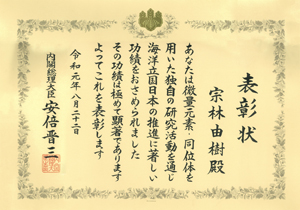 表彰状
宗林由樹殿
あなたは微量元素・同位体を
用いた独自の研究活動を通じ
海洋立国日本の推進に著しい
功績をおさめられました
その功績は極めて顕著であります
よってこれを表彰します
令和元年八月二十二日
内閣総理大臣 安倍晋三